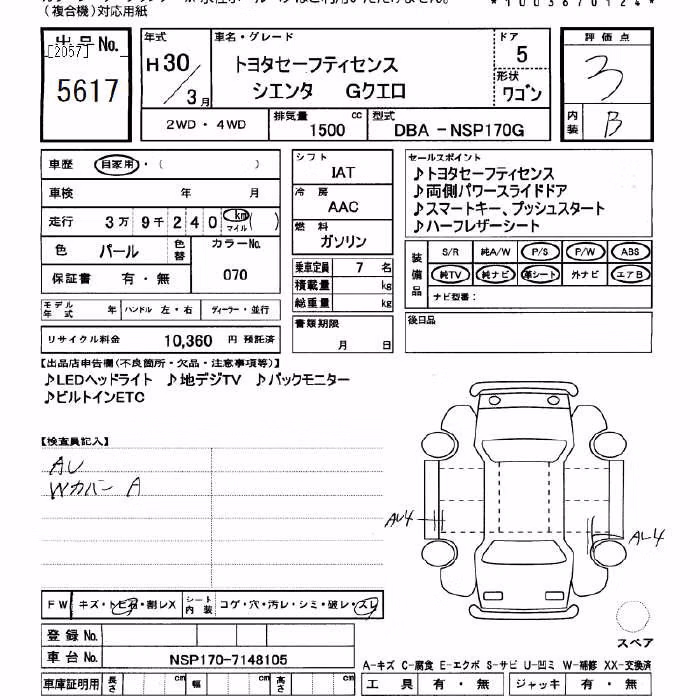 (複合機)対応用紙
*1003670124*
出品No.
[2057]
5617
年式
H30/3月
車名・グレード
トヨタセーフティセンス
シエンタ Gクエロ
ドア
5
形状
ワゴン
評価点
3
内装
B
2WD・4WD
排気量
1500 cc
型式
DBA-NSP170G
車歴 自家用・( )
車検 年 月
走行 3万9千240 km マイル( )
色 パール 色替 カラーNo.
070
保証書 有・無
モデル年式 年 ハンドル 左・右 ディーラー・並行
リサイクル料金 10,360 円 預託済
シフト
IAT
冷房
AAC
燃料
ガソリン
乗車定員 7 名
積載量 kg
総重量 kg
書類期限
月 日
セールスポイント
♪トヨタセーフティセンス
♪両側パワースライドドア
♪スマートキー、プッシュスタート
♪ハーフレザーシート
装備品
S/R 純A/W P/S P/W ABS
純TV 純ナビ 革シート 外ナビ エアB
ナビ型番:
後日品
【出品店申告欄(不良箇所・欠品・注意事項等)】
♪LEDヘッドライト ♪地デジTV ♪バックモニター
♪ビルトインETC
【検査員記入】
AU
Wカバー A
AU4
AL4
FW キズ・トビ石・割レX シート内装 コゲ・穴・汚レ・シミ・破レ・スレ
スペア
登録No.
車台No. NSP170-7148105
A-キズ C-腐食 E-エクボ S-サビ U-凹ミ W-補修 XX-交換済
車庫証明用 長さ cm 幅 cm 高さ cm 工具 有・無 ジャッキ 有・無